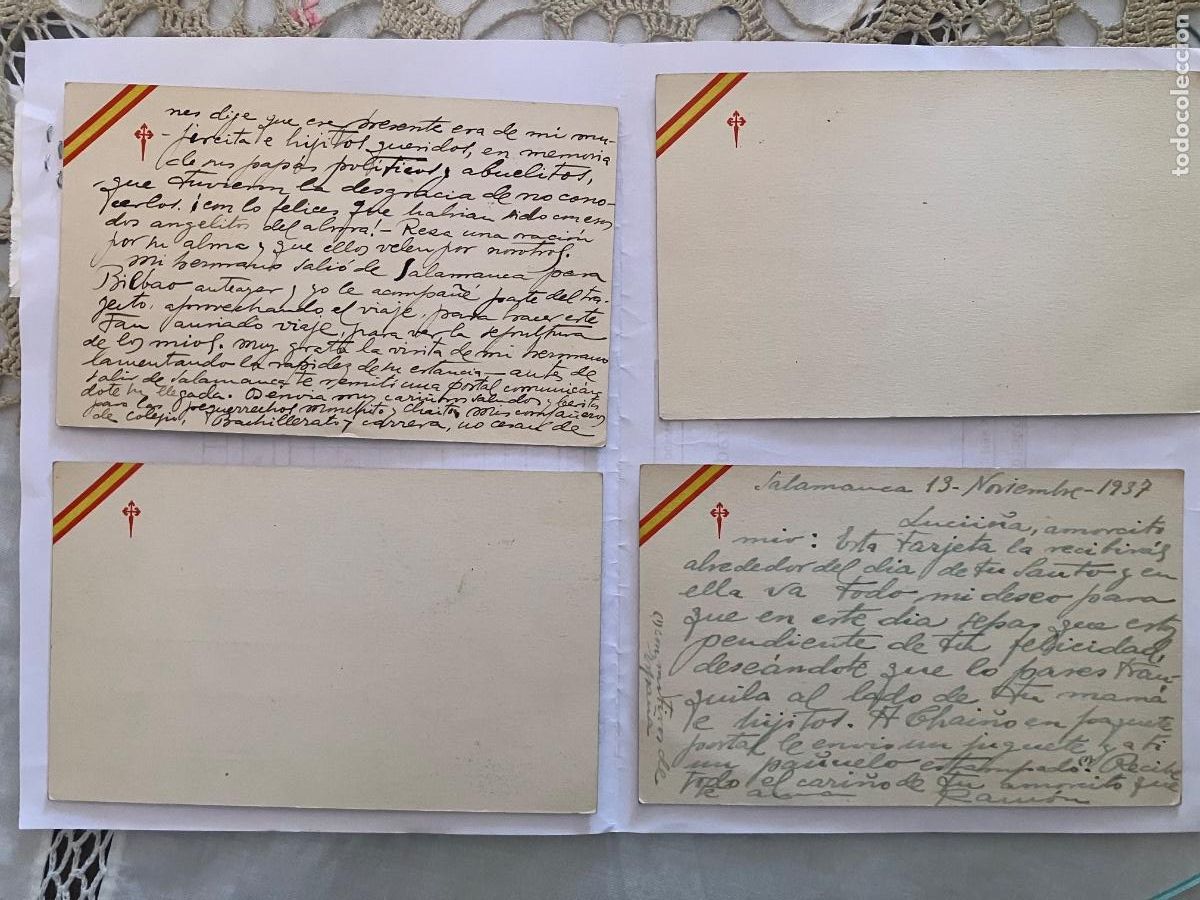 nes dije que ese presente era de mi mu-
-jercita e hijitos queridos, en memoria
de sus papás políticos y abuelitos,
que tuvieron la desgracia de no cono-
cerlos. ¡con lo felices que habrian sido con esos
dos angelitos del alma! - Resa una oración
por su alma y que ellos velen por nosotros.
Mi hermano salió de Salamanca para
Bilbao anteayer y yo le acompañé parte del tra-
yecto, aprovechando el viaje, para hacer este
tan ansiado viaje, para ver la sepultura
de los mios. Muy grata la visita de mi hermano
lamentando la rapidez de su estancia - antes de
salir de Salamanca te remití una postal comunicán
dote su llegada. Os envia muy cariñosos saludos y besitos
para los pequerrechos Monchito y Chaito. Mis compañeros
de colegio, Bachillerato y carrera, no cesan de
Salamanca 13-Noviembre-1937
Luciiña, amorcito
mio: Esta tarjeta la recibirás
alrededor del dia de tu Santo y en
ella va todo mi deseo para
que en este dia sepas que estoy
pendiente de tu felicidad,
deseándote que lo pases tran-
quila al lado de tu mamá
e hijitos. A Chaiño en paquete
postal le envio un juguete y a ti
un pañuelo estampado. Recibe
todo el cariño de tu amorcito que
te ama
Ramón
con motivos de
España
todocoleccion